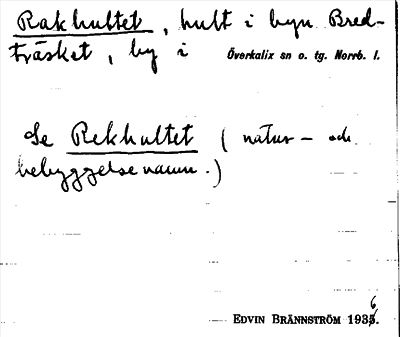 Rakhultet, hult i byn Bred-
träsket, by i Överkalix sn o. tg. Norrb. l.
Se Rekhultet (natur- och
bebyggelsenamn.)
EDVIN BRÄNNSTRÖM 1936.